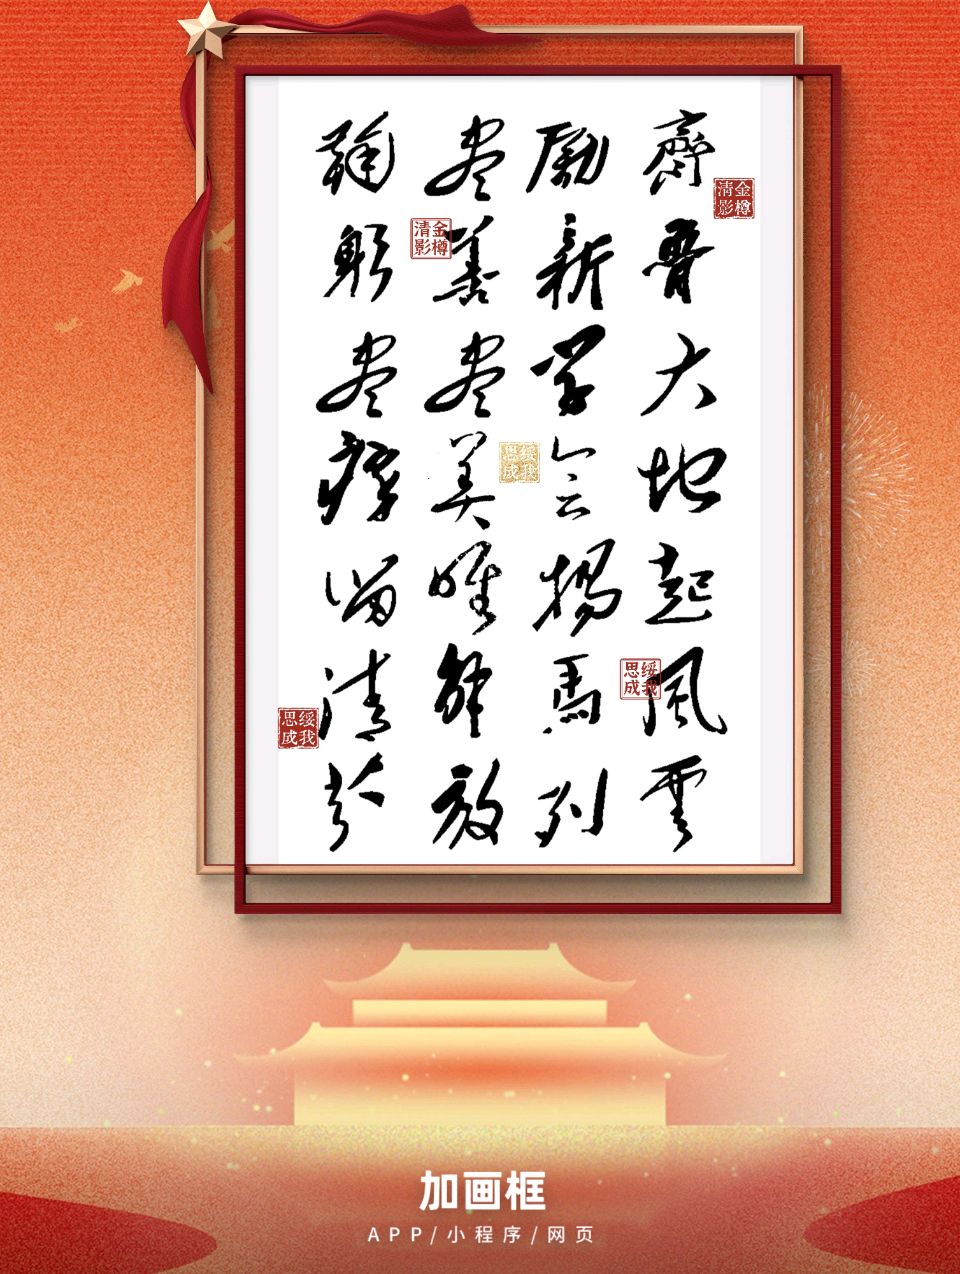 齊魯大地起風雲
勵新学会揚馬列
尽善尽美唯解放
鞠躬尽瘁留清芬
金樽清影
金樽清影
綏我思成
綏我思成
綏我思成
加画框
APP/小程序/网页